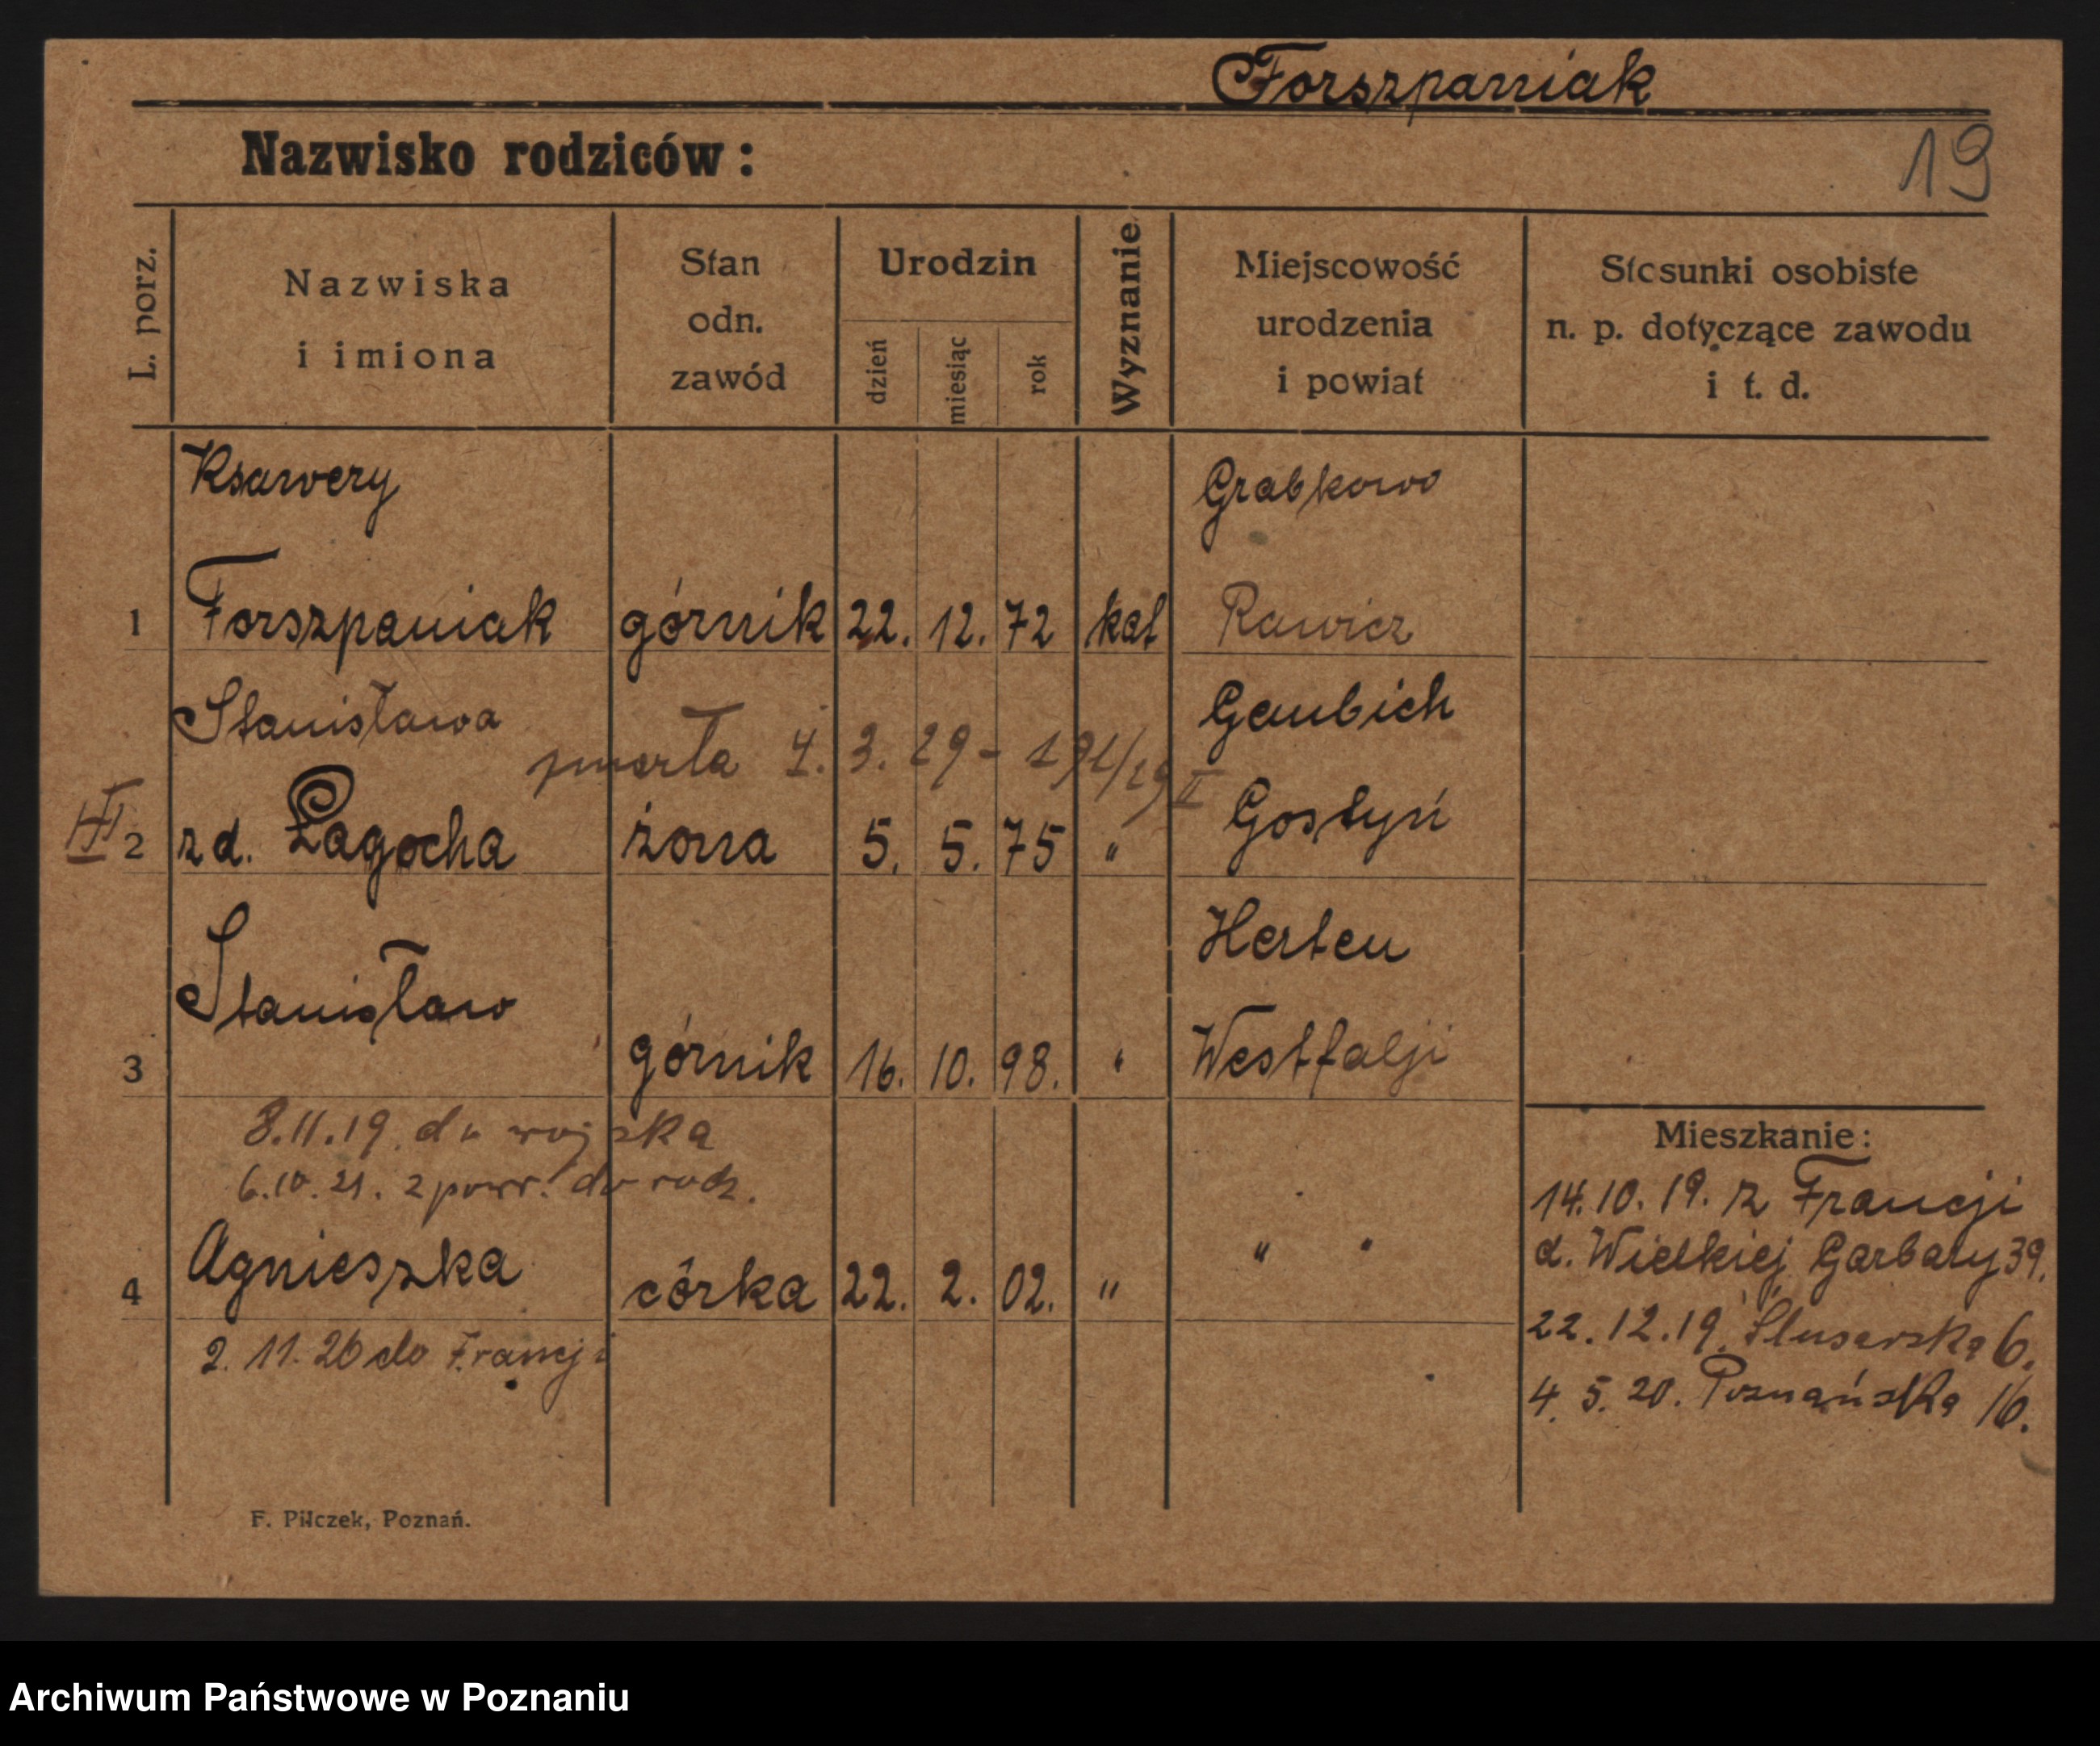 Forszpaniak
Nazwisko rodziców:
19
L. porz.
Nazwiska
i imiona
Stan
odn.
zawód
Urodzin
dzień
miesiąc
rok
Wyznanie
Miejscowość
urodzenia
i powiat
Stosunki osobiste
n. p. dotyczące zawodu
i t. d.
Ksawery
Grabkowo
1 Forszpaniak górnik 22. 12. 72 kat Rawicz
Stanisława
Gembich
zmarła 4. 3. 29 - 191/29 II
Gostyń
III 2 z d. Łagocha żona 5. 5. 75 "
Stanisław
Herten
3 górnik 16. 10. 98. " Westfalji
8.11.19. do wojska
6.10.21. z powr. do rodz.
4 Agnieszka córka 22. 2. 02. " " "
2. 11. 26 do Francji
Mieszkanie:
14. 10. 19. z Francji
d. Wielkiej Garbary 39.
22. 12. 19. Slusarska 6.
4. 5. 20. Poznańska 16.
F. Pilczek, Poznań.
Archiwum Państwowe w Poznaniu